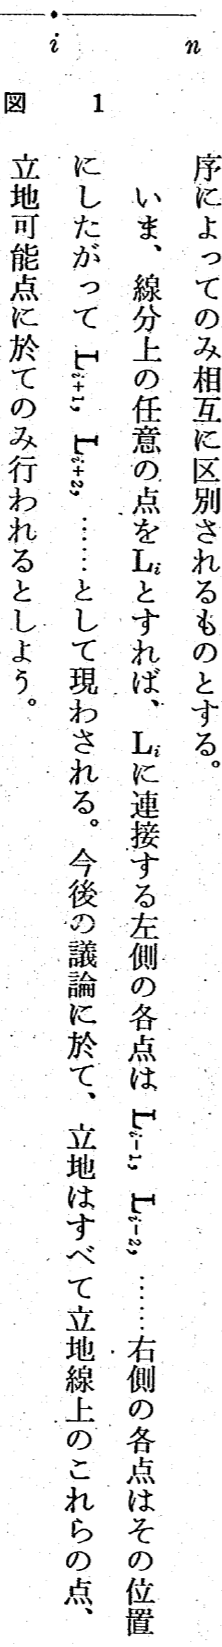 i n
図 1
序によってのみ相互に区別されるものとする。
いま、線分上の任意の点をLiとすれば、Liに連接する左側の各点はLi−1, Li−2, ……右側の各点はその位置
にしたがって Li+1, Li+2, ……として現わされる。今後の議論に於て、立地はすべて立地線上のこれらの点、
立地可能点に於てのみ行われるとしよう。